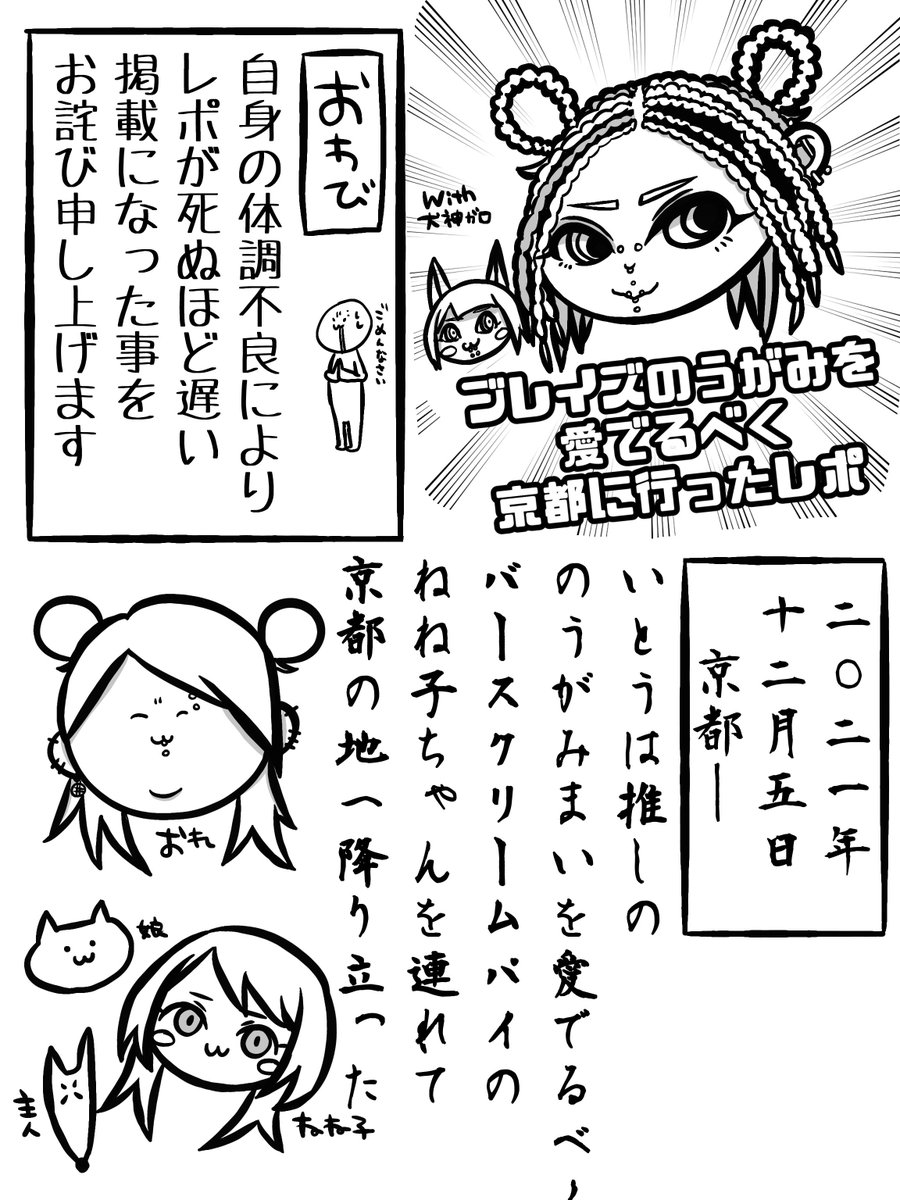 With
犬神ガロ
ブレイズのうがみを
愛でるべく
京都に行ったレポ
おわび
自身の体調不良により
レポが死ぬほど遅い
掲載になった事を
お詫び申し上げます
ごめんなさい
二〇二一年
十二月五日
京都―
いとうは推しの
のうがみまいを愛でるべく
バースクリームパイの
ねね子ちゃんを連れて
京都の地へ降り立った
おれ
娘
主人
ねね子